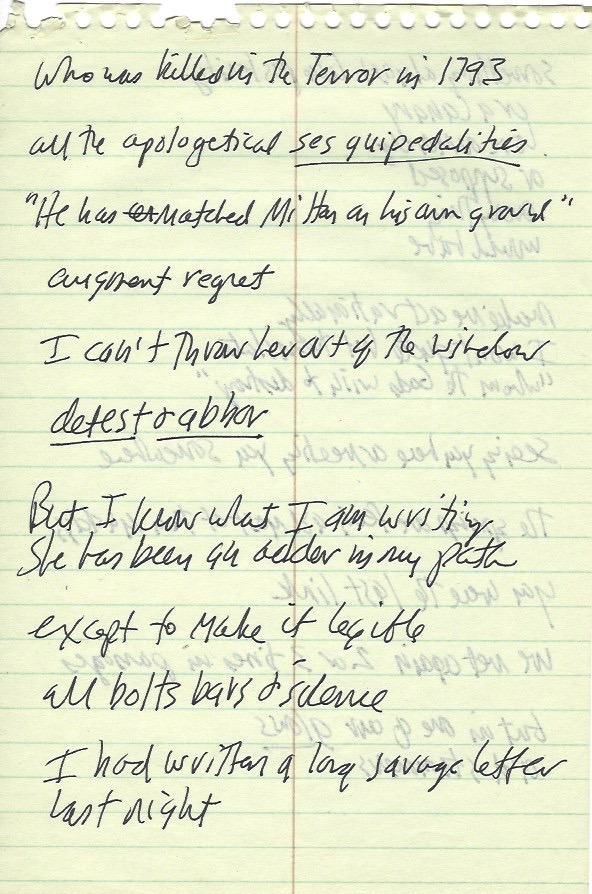 who was killed in the Terror in 1793
all the apologetical sesquipedalities
"He has matched Milton on his own ground"
augment regret
I can't throw her out of the window
detest & abhor
But I know what I am writing
She has been an adder in my path
except to make it legible
all bolts bars & silence
I had written a long savage letter
last night